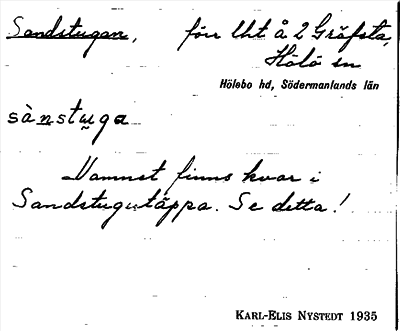 Sandstugan, förr lht å 2 Gräfsta,
Hölö sn
Hölebo hd, Södermanlands län
sànstu̯ga
Namnet finns kvar i
Sandstugutäppa. Se detta!
KARL-ELIS NYSTEDT 1935